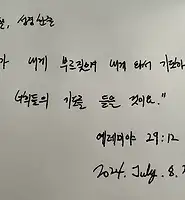 , 성경 한줄
가 내게 부르짖으며 내게 와서 기도하
너희들의 기도를 들을 것이요."
예레미야 29:12
2024. July. 8.